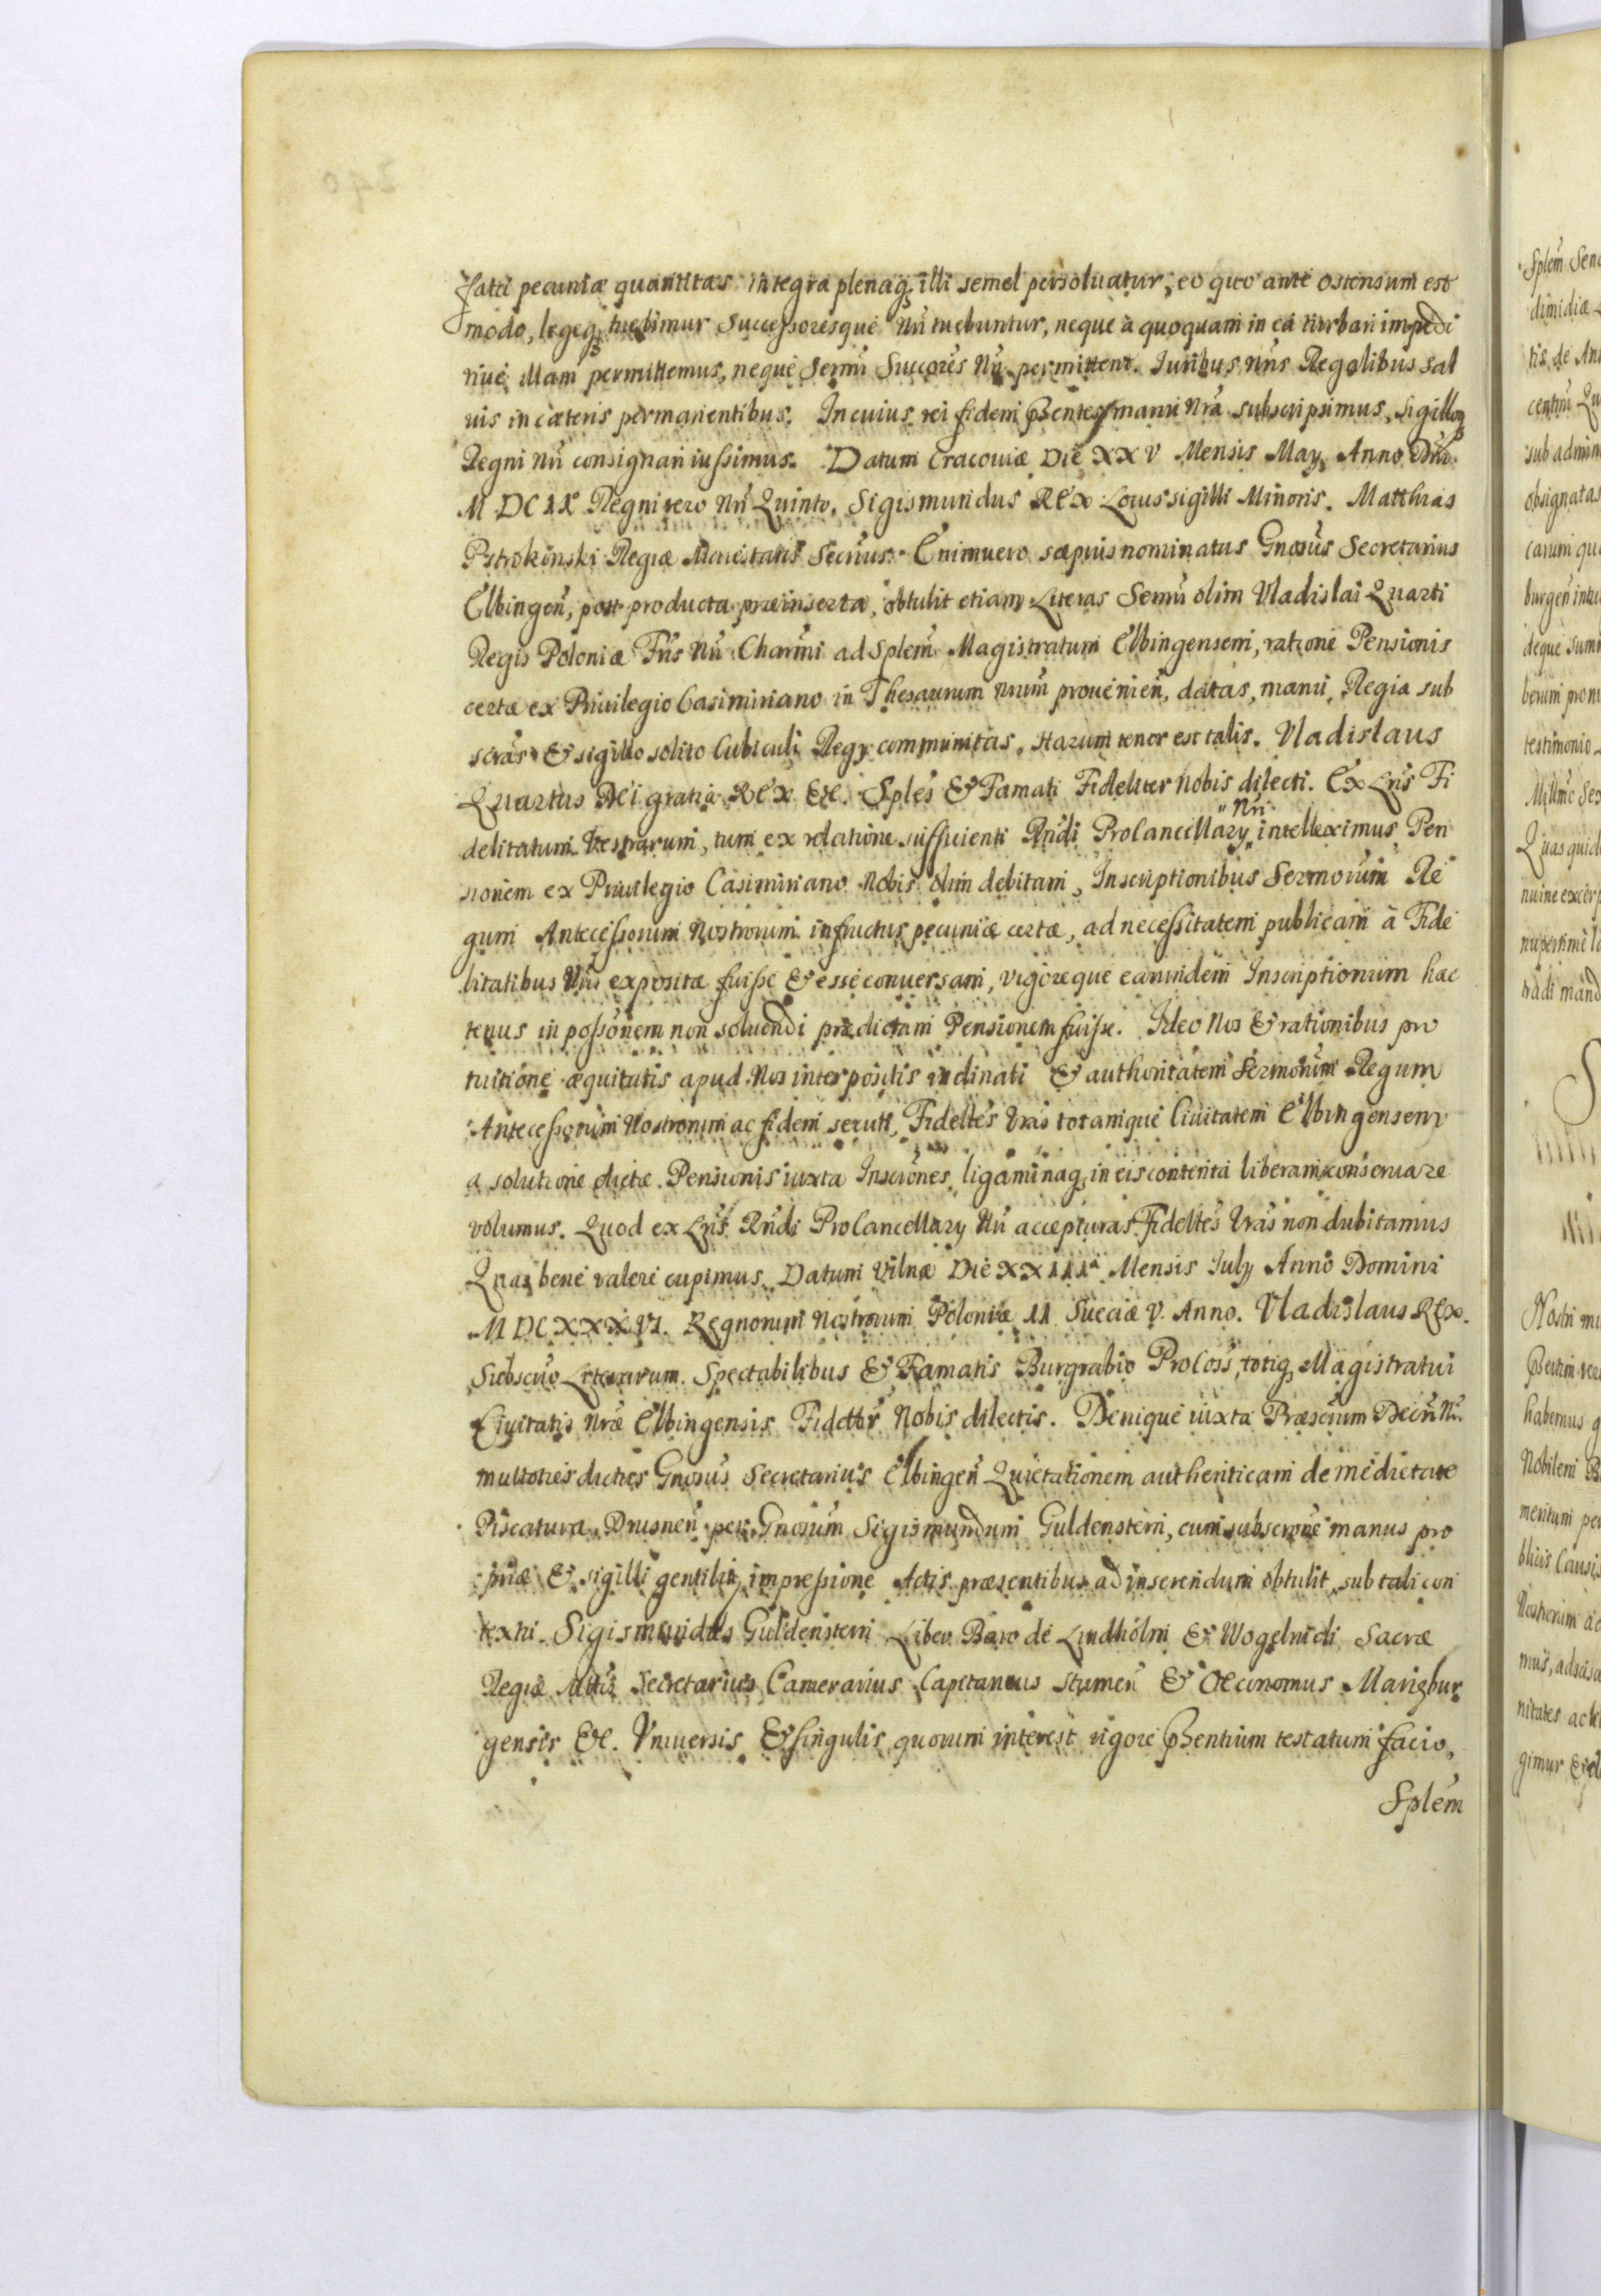 fatti pecuniæ quantitas integra plenaq; illi semel persoluatur, eo quo ante ostensum est
modo, legeq; tuebimur Successoresque Nri tuebuntur, neque a quoquam in ea turbari impedi
riue illam permittemus, neque Sermi Succores Nri permittent. Juribus Nris Regalibus sal
uis in cæteris permanentibus. In cuius rei fidem Pntes manu Nra subscripsimus, sigilloq;
Regni Nri consignari iussimus. Datum Cracouiæ Die XXV Mensis May Anno Dni
M DC IX Regni vero Nri Quinto. Sigismundus REX Locus sigilli Minoris. Matthias
Pstrokonski Regiæ Maiestatis Secrius. Enimuero sæpius nominatus Gnosus Secretarius
Elbingen, post producta præinserta, obtulit etiam Literas Sermi olim Vladislai Quarti
Regis Poloniæ Fris Nri Charmi ad Splem Magistratum Elbingensem, ratione Pensionis
certæ ex Priuilegio Casimiriano in Thesaurum nrum prouenien, datas, manu Regia sub
scras & sigillo solito Cubiculi Regy communitas. Harum tenor est talis. Vladislaus
Quartus DEI gratia REX &c. Sples & Famati Fideliter Nobis dilecti. Ex Lris Fi
delitatum Vestrarum, tum ex relatione sufficienti Rndi Procancellary Nri intelleximus Pen
sionem ex Priuilegio Casimiriano Nobis olim debitam, Inscriptionibus Sermorum Re
gum Antecessorum Nostrorum in fructus pecuniæ certæ, ad necessitatem publicam à Fide
litatibus Vris expositæ fuisse & esse conuersam, vigoreque earundem Inscriptionum hac
tenus in possonem non soluendi prædictam Pensionem fuisse. Ideo Nos & rationibus pro
tuitione æquitatis apud Nos interpositis inclinati & authoritatem Sermorum Regum
Antecessorum Nostrorum ac fidem secuti, Fideltes Vras totamque Ciuitatem Elbingensem
a solutione dictæ Pensionis iuxta Inscriones ligaminaq; in eis contenta liberam conseruare
volumus. Quod ex Lris Rndi ProCancellary Nri accepturas Fideltes Vras non dubitamus
Quas bene valere cupimus. Datum Vilnæ Die XXIIIa Mensis July Anno Domini
M DC XXXVI. Regnorum Nostrorum Poloniæ IV Sueciæ V. Anno. Vladislaus REX.
Subscrio Literarum. Spectabilibus & Famatis Burgrabio Procoss, totiq; Magistratui
Ciuitatis Nræ Elbingensis Fidelter Nobis dilectis. Denique iuxta Præscrum Decri Nri
multoties dictus Gnosus Secretarius Elbingen Quietationem authenticam de medietate
Piscaturæ Drusnen per Gnosum Sigismundum Guldenstern, cum subscrone manus pro
priæ & sigilli gentility impressione Actis præsentibus ad inserendum obtulit, sub tali con
textu. Sigismundus Guldenstern Liber Baro de Lindholm & Wogelwidi Sacræ
Regiæ Mttis Secretarius Camerarius Capitaneus Stumen & Oeconomus Marigbur
gensis &c. Vniuersis & singulis quorum interest vigore Pntium testatum facio,
Splem